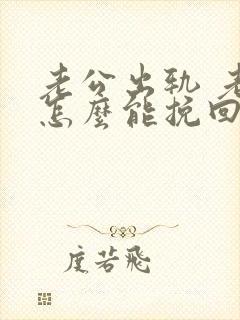 老公出轨 老
怎麼能挽回
度若飛